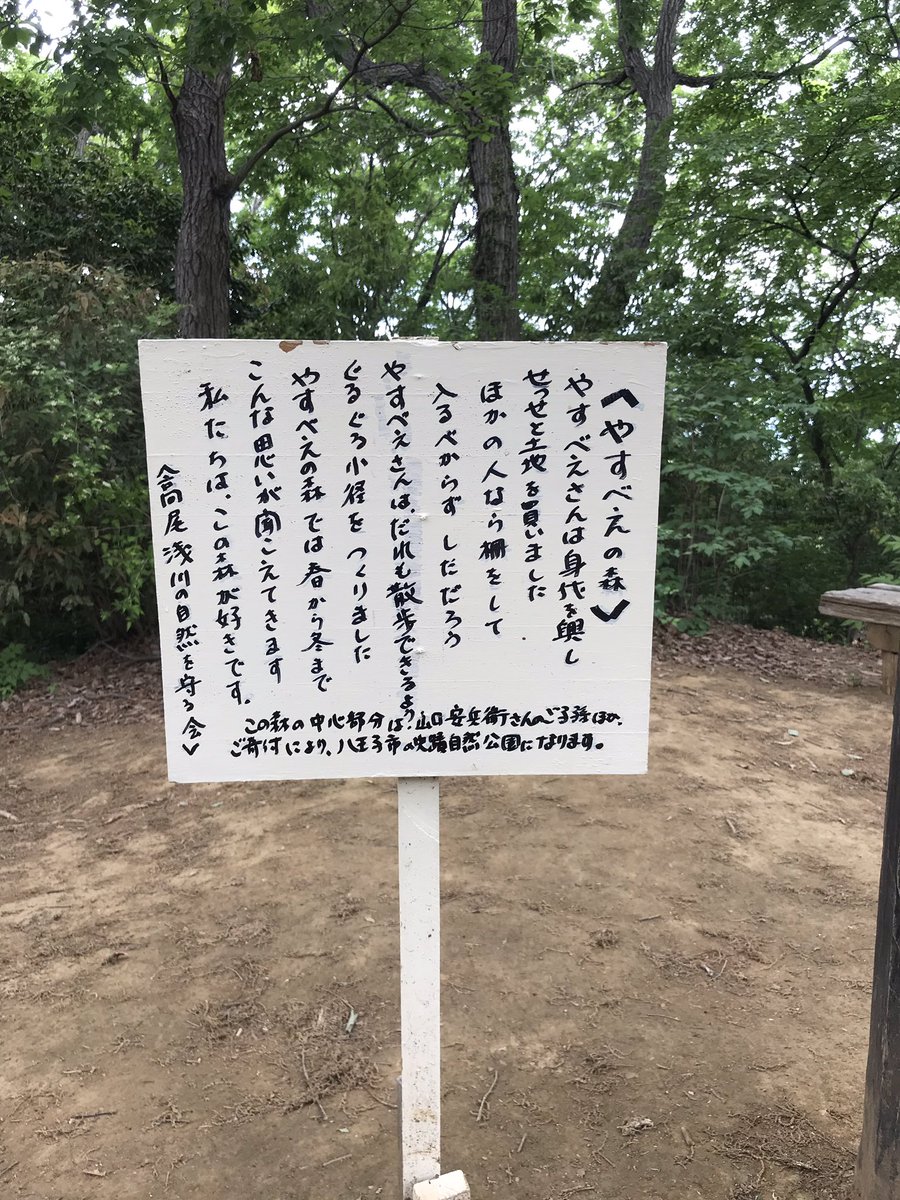 〈やすべえの森〉
やすべえさんは身代を興し
せっせと土地を買いました
ほかの人なら柵をして
入るべからず しただろう
やすべえさんは、だれも散歩できるよう
ぐるぐる小径を つくりました
やすべえの森では春から冬まで
こんな思いが聞こえてきます
私たちは、この森が好きです。
〈高尾浅川の自然を守る会〉
この森の中心部分は、山口安兵衛さんのご子孫ほか、
ご寄付により、八王子市の史蹟自然公園になります。